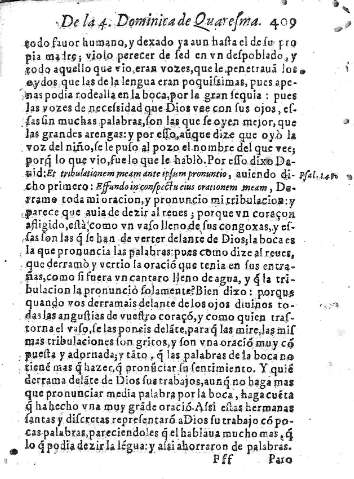 De la 4. Dominica de Quaresma. 409
todo fauor humano, y dexado ya aun hasta el de su pro
pia madre; violo perecer de sed en vn despoblado, y
todo aquello que vio, eran vozes, que le penetrauã los
oydos que las de la lengua eran poquissimas, pues ape-
nas podia rodealla en la boca, por la gran sequia: pues
las vozes de necessidad que Dios vee con sus ojos, es-
sas sun muchas palabras, son las que se oyen mejor, que
las grandes arengas: y por esso, aũque dize que oyò la
voz del niño, se le puso al pozo el nombre del que vee;
porq̃ lo que vio, fue lo que le hablò. Por esso dixo Da-
uid: Et tribulationem meam ante ipsum pronuntio, auiendo di- Psal. 141.
cho primero: Effundo in conspectu eius orationem meam, De-
rramo toda mi oracion, y pronuncio mi tribulacion: y
parece que auia de dezir al reues; porque vn coraçon
afligido, està como vn vaso lleno de sus congoxas, y es-
sas son las q̃ se han de verter delante de Dios; la boca es
la que pronuncia las palabras: pues como dize al reues,
que derramò y vertio la oraciõ que tenia en sus entra-
ñas, como si fuera vn cantaro lleno de agua, y q̃ la tri-
bulacion la pronunciò solamente? Bien dixo: porque
quando vos derramais delante de los ojos diuinos to-
das las angustias de vuestro coraçõ, y como quien tras-
torna el vaso, se las poneis delãte, para q̃ las mire, las mis
mas tribulaciones son gritos, y son vna oraciõ muy cõ
puesta y adornada; y tãto, q̃ las palabras de la boca no
tienẽ mas q̃ hazer, q̃ pronũciar su sentimiento. Y quiẽ
derrama delãte de Dios sus trabajos, aunq̃ no haga mas
que pronunciar media palabra por la boca, haga cuẽta
q̃ ha hecho vna muy grãde oraciõ. Assi estas hermanas
santas y discretas representarõ a Dios su trabajo cõ po-
cas palabras, pareciendoles q̃ el hablaua mucho mas, q̃
lo q̃ podia dezir la lẽgua: y assi ahorraron de palabras.
Fff Paro